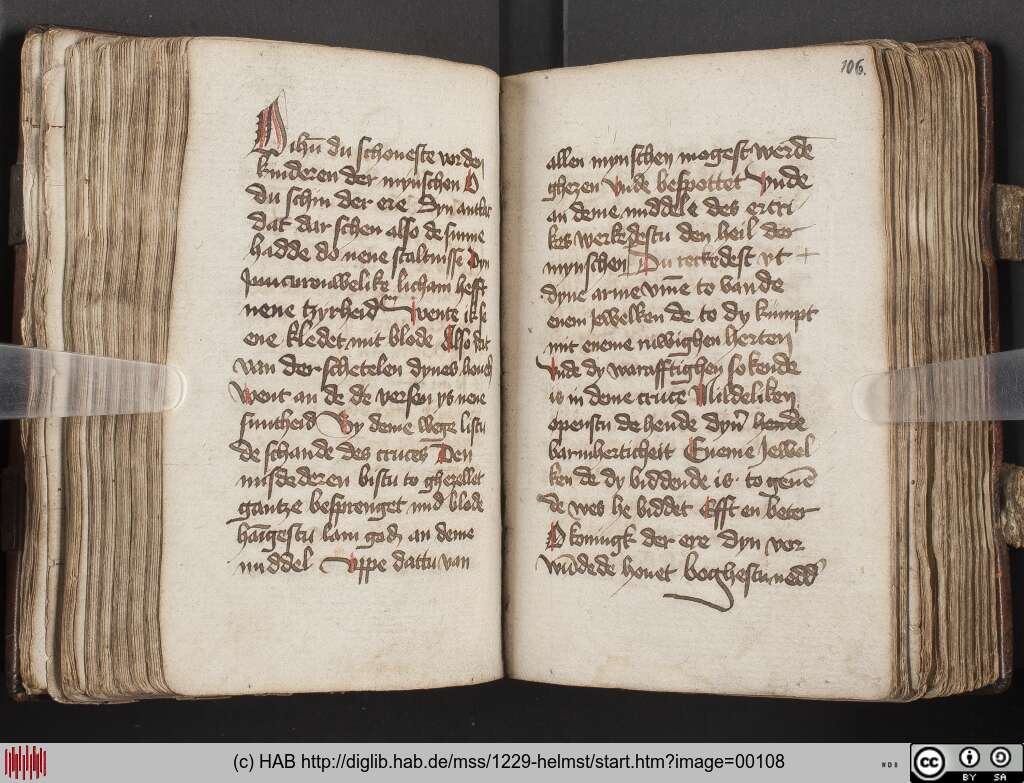 O ihū du schoneste vor den
kinderen der mynschen O
du schin der ere Dyn antlat
dat dar schen also de sunne
hadde do nene staltnisse Dyn
Juncvrouwelike licham hefft
nene tzyrheid wente ik se
ene kledet mit blode Also dat
van der schetelen dynes hovedes
Went an de de versen ys nene
suntheid By deme wege listu
de schande des cruces Den
misdederen bistu to ghezellet
gantze besprenget mid blode
hāgestu lam godes an deme
middel Uppe dattu van
106.
allen mynschen mogest werdē
ghezen Unde bespottet Unde
an deme middele des ertri
kes werkedestu den heil der
mynschen Du reckedest ut
dyne arme ūme to van de
enem Jewelken de to dy kumpt
mit eneme ruwighen herten
Unde dy warafftighen sokende
is in deme cruce Mildeliken
openstu de hende dyner
barmherticheit Eneme Jewel
ken de dy biddende is to gevē
de wes he biddet Efft en beter
O koningk der ere dyn vor
wūdede hovet boghestu nedder
(c) HAB http://diglib.hab.de/mss/1229-helmst/start.htm?image=00108
WDB
cc
BY SA